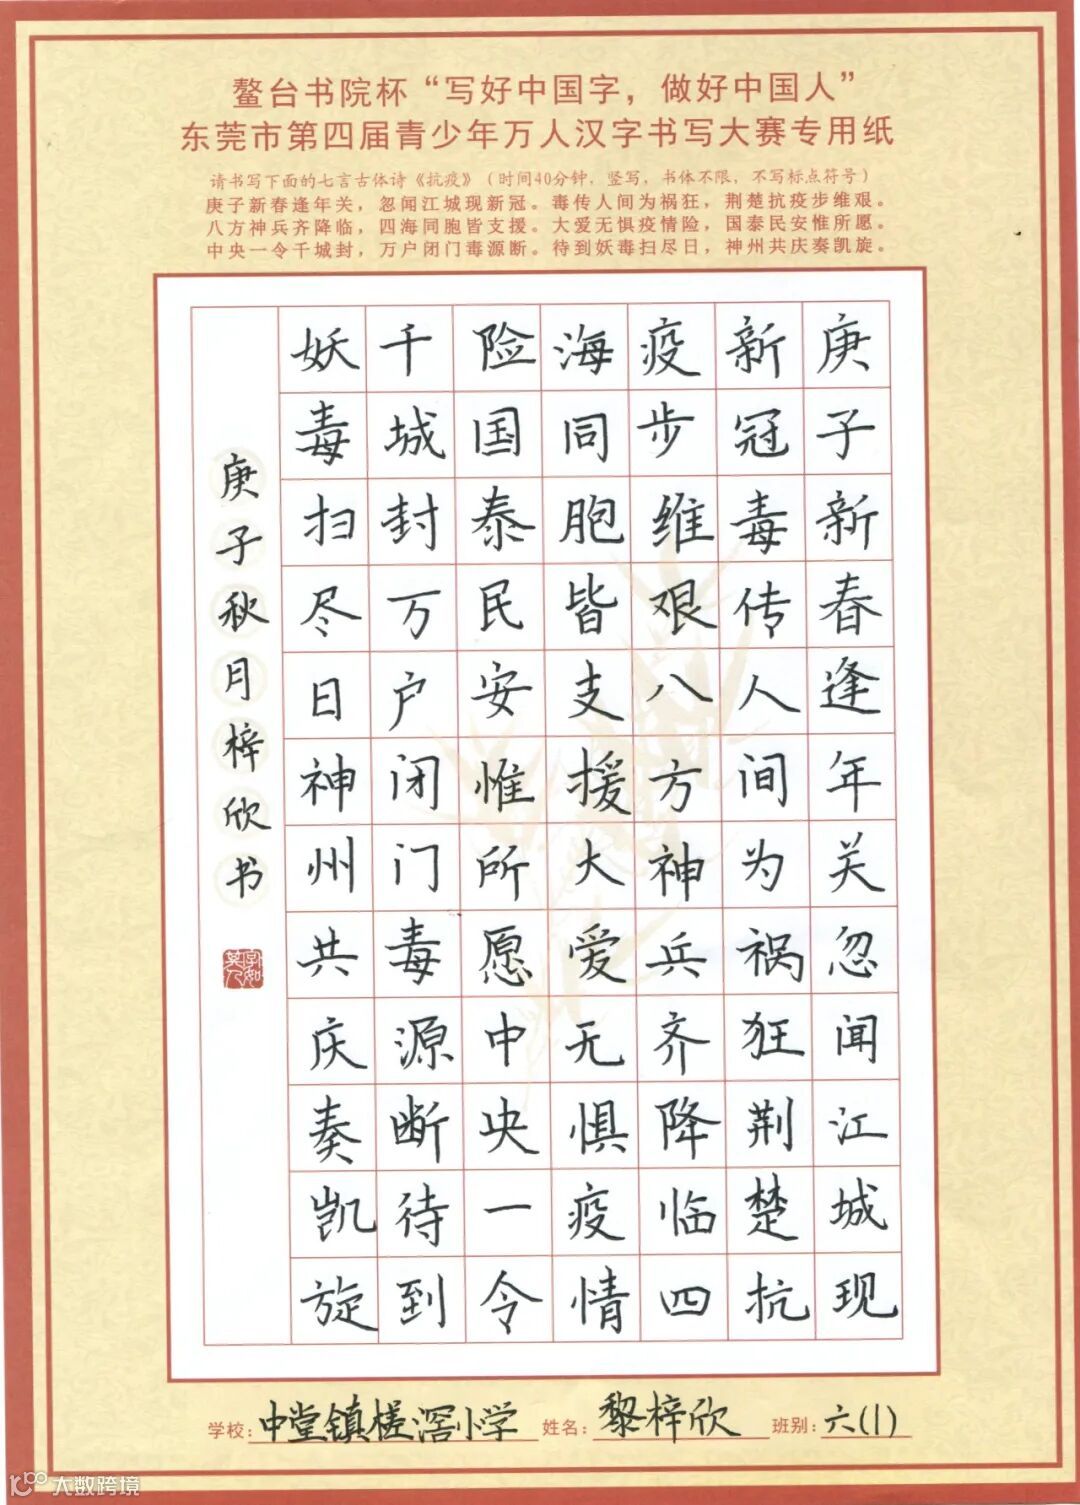 鳌台书院杯“写好中国字，做好中国人”
东莞市第四届青少年万人汉字书写大赛专用纸
请书写下面的七言古体诗《抗疫》（时间40分钟，竖写，书体不限，不写标点符号）
庚子新春逢年关，忽闻江城现新冠。毒传人间为祸狂，荆楚抗疫步维艰。
八方神兵齐降临，四海同胞皆支援。大爱无惧疫情险，国泰民安惟所愿。
中央一令千城封，万户闭门毒源断。待到妖毒扫尽日，神州共庆奏凯旋。
庚子新春逢年关忽闻江城现
新冠毒传人间为祸狂荆楚抗
疫步维艰八方神兵齐降临四
海同胞皆支援大爱无惧疫情
险国泰民安惟所愿中央一令
千城封万户闭门毒源断待到
妖毒扫尽日神州共庆奏凯旋
庚子秋月梓欣书
学校：中堂镇槎滘小学 姓名：黎梓欣 班别：六(1)
大数跨境